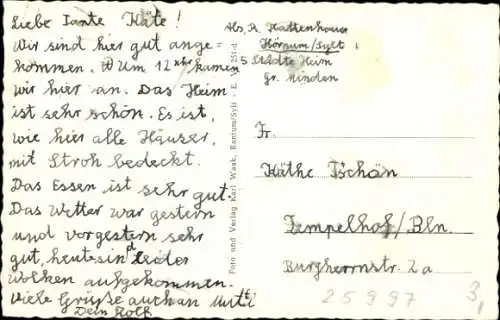 Liebe Tante Käte!
Wir sind hier gut ange=
kommen. Um 12 uhr kamen
wir hier an. Das Heim
ist sehr schön. Es ist,
wie hier alle Häuser,
mit Stroh bedeckt.
Das Essen ist sehr gut.
Das Wetter war gestern
und vorgestern sehr
gut, heute sind leider
wolken aufgekommen.
Viele Grüße auch an Mutti
Dein Rolf
Foto und Verlag Karl Waak, Rantum/Sylt
Abs. R. Kattenhauer
Hörnum/Sylt
5 Städte Heim
Gr. minden
Fr.
Käthe Tschän
Tempelhof/Bln.
Burgherrnstr. 2a
25997
3,